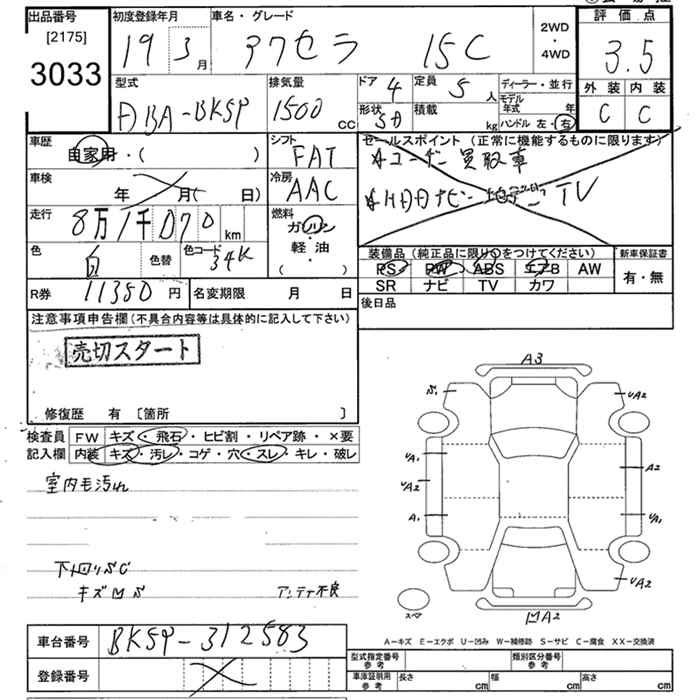 出品番号 初度登録年月 車名・グレード 2WD・4WD 評価点
[2175]
3033 19 3月 アクセラ 15C 3.5
型式 排気量 ドア 4 定員 5人 ディーラー・並行 外装 内装
DBA-BK5P 1500cc 形状 5D 積載 kg モデル年式 年 C C
ハンドル 左・右
車歴 自家用・( ) シフト FAT セールスポイント (正常に機能するものに限ります)
車検 年 月( 日) 冷房 AAC
走行 8万1千070km 燃料 ガソリン
軽・油
( )
色 白 色替 色コード 34K 装備品 (純正品に限り○をつけてください) 新車保証書
PS PW ABS エアB AW 有・無
R券 11380円 名変期限 月 日 SR ナビ TV カワ
注意事項申告欄 (不具合内容等は具体的に記入して下さい) 後日品
売切スタート
修復歴 有 [箇所 ]
検査員 FW キズ・飛石・ヒビ割・リペア跡・×要
記入欄 内装 キズ・汚レ・コゲ・穴・スレ・キレ・破レ
室内毛汚れ
下回りSC
アンテナ不良
A3
A2
A2
A1
A2
A2
スペア
A-キズ E-エクボ U-凹み W-補修跡 S-サビ C-腐食 XX-交換済
車台番号 BK5P-312583 型式指定番号 参考 類別区分番号 参考
登録番号 車庫証明用 参考 長さ cm 幅 cm 高さ cm